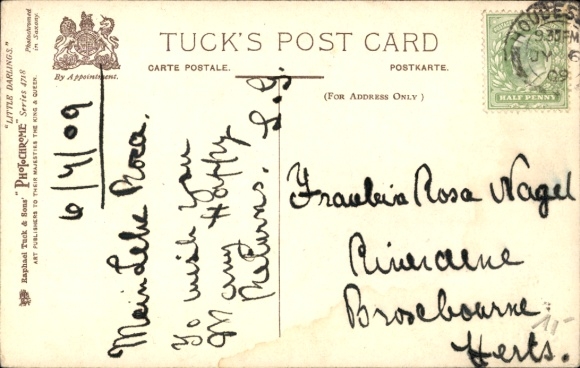 TUCK'S POST CARD
CARTE POSTALE. POSTKARTE.
(FOR ADDRESS ONLY)
By Appointment.
"LITTLE DARLINGS."
Raphael Tuck & Sons' "PHOTOCHROME" Series 4718
ART PUBLISHERS TO THEIR MAJESTIES THE KING & QUEEN.
Photochromed
in Saxony.
HALF PENNY
09
6/7/09
Mein Liebe Rosa.
To wish you
Many Happy
Returns. L.G.
Fraulein Rosa Nagel
Broxbourne
Herts.